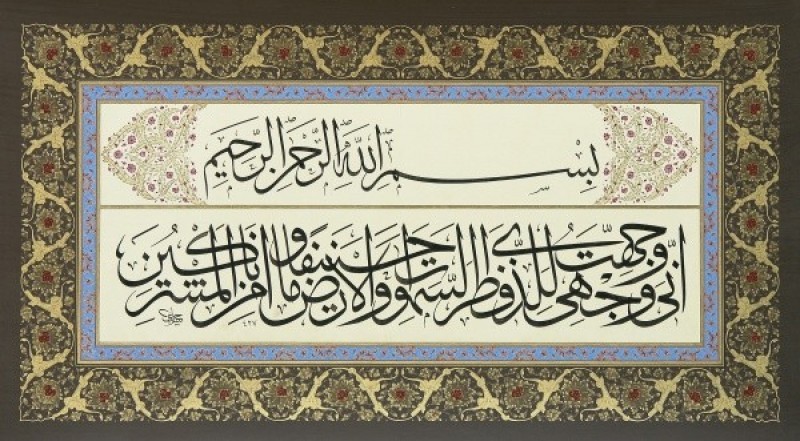 بِسْمِ اللّٰهِ الرَّحْمٰنِ الرَّحِيمِ
انّى وجّهت وجهى للّذى فطر السّموات والارض حنيفًا وما انا من المشركين